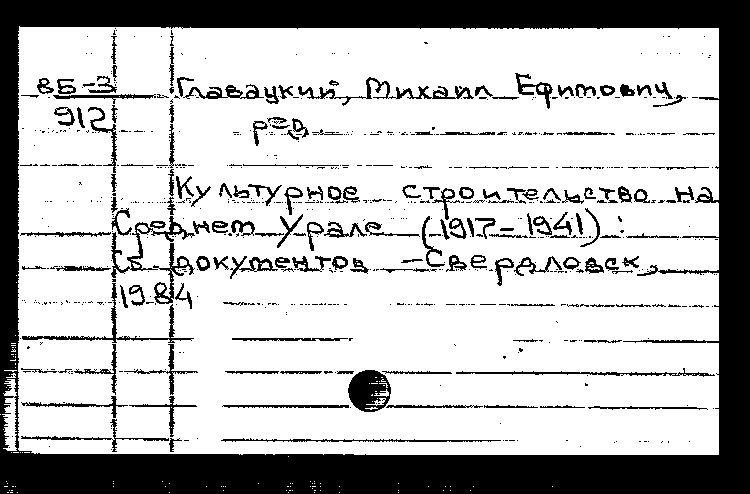 85-3 Главацкий, Михаил Ефимович,
912 ред
Культурное строительство на
Среднем Урале (1917-1941):
Сб. документов -Свердловск,
1984